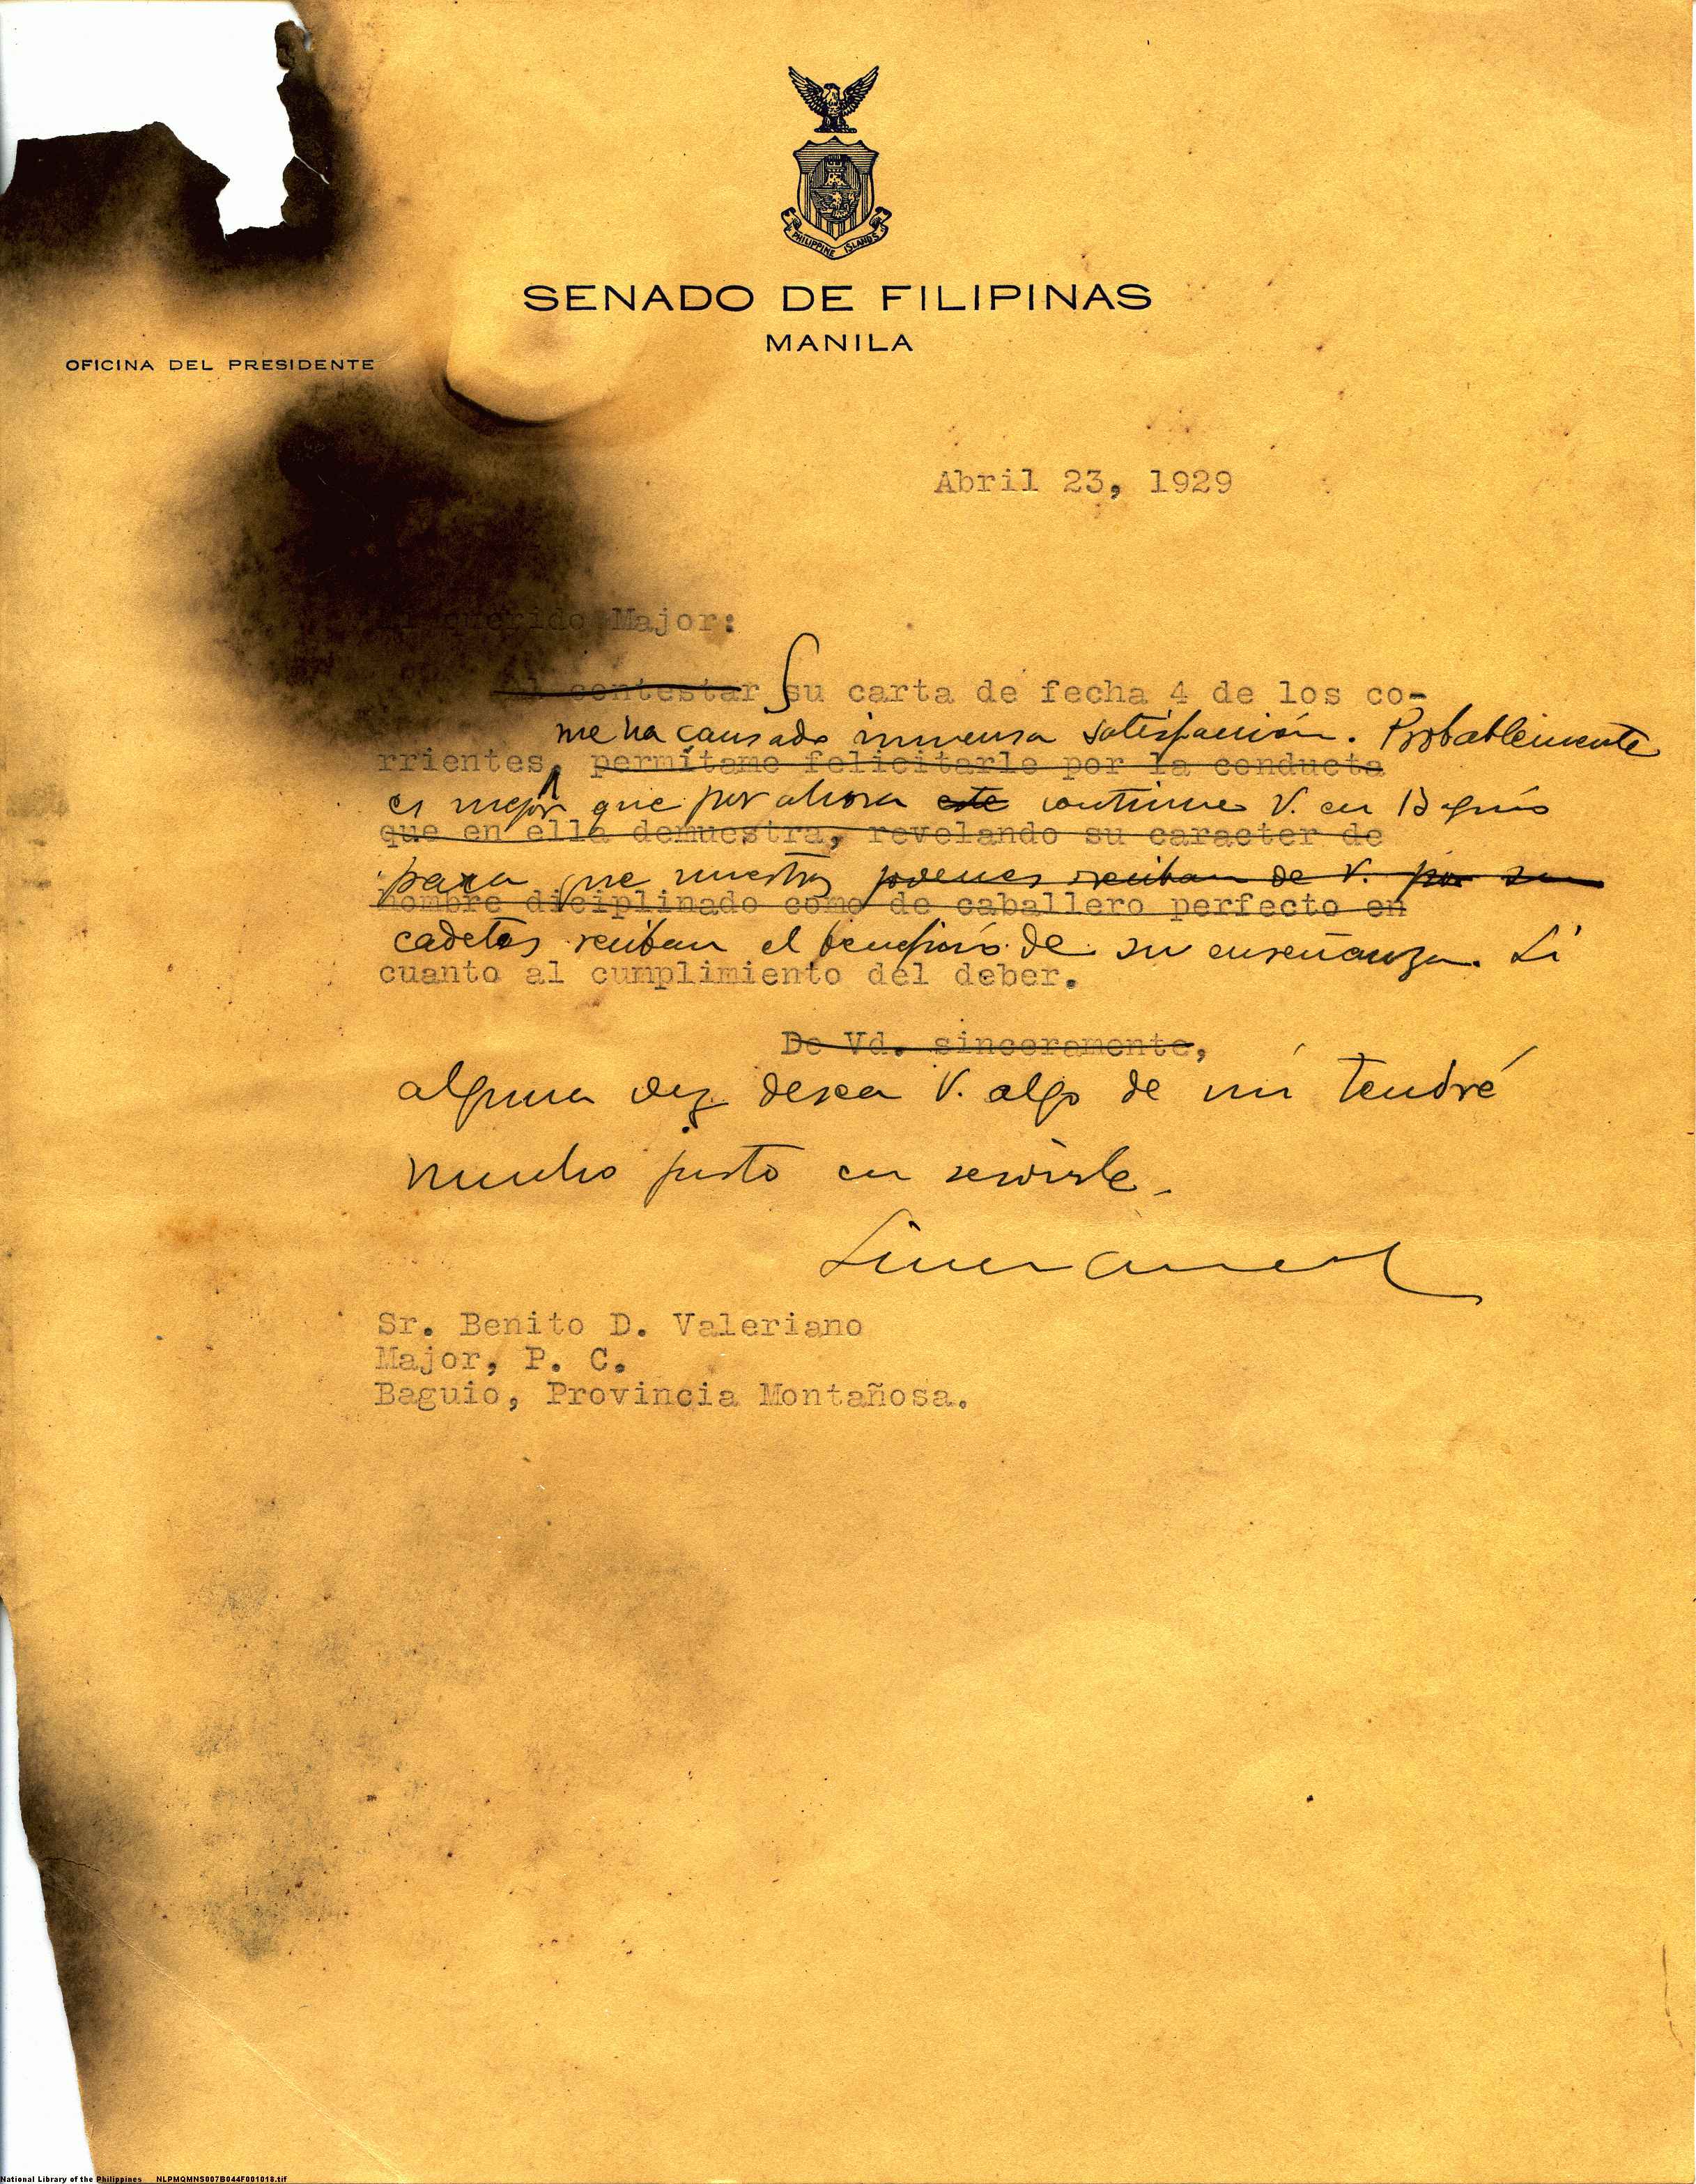 PHILIPPINE ISLANDS
SENADO DE FILIPINAS
MANILA
OFICINA DEL PRESIDENTE
Abril 23, 1929
querido Major:
Al contestar su carta de fecha 4 de los co-
me ha causado inmensa satisfacción. Probablemente
rrientes, permítame felicitarle por la conducta
es mejor que por ahora este continue V. en Baguio
que en ella demuestra, revelando su caracter de
para que nuestros jovenes reciban de V. por su
hombre diciplinado como de caballero perfecto en
cadetes reciban el beneficio de su enseñanza. Si
cuanto al cumplimiento del deber.
De Vd. sinceramente,
alguna vez desea V. algo de mi tendré
mucho gusto en servirle.
Sr. Benito D. Valeriano
Major, P. C.
Baguio, Provincia Montañosa.
National Library of the Philippines NLPMQMNS007B044F001018.tif